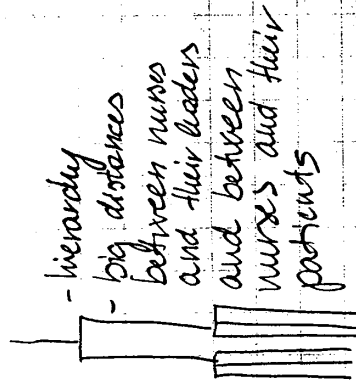 - hierarchy
- big distances
between nurses
and their leaders
and between
nurses and their
patients